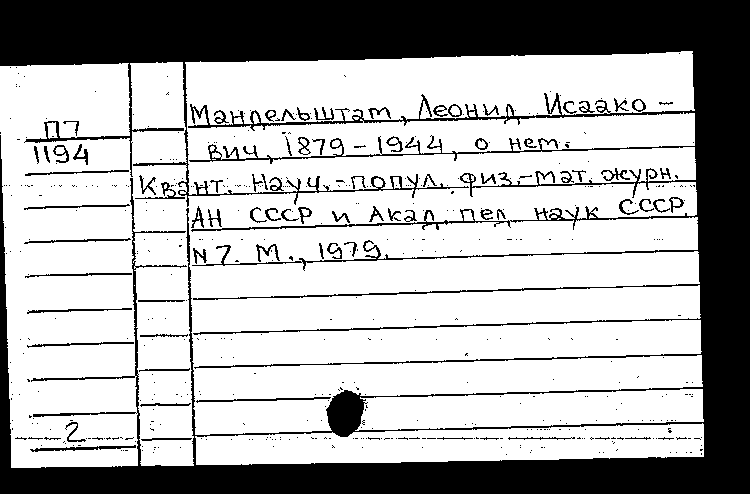 П7
1194
Мандельштам, Леонид Исаако-
вич, 1879-1944, о нем.
Квант. Науч.-попул. физ.-мат. журн.
АН СССР и Акад. пед. наук СССР.
N 7. М., 1979.
2